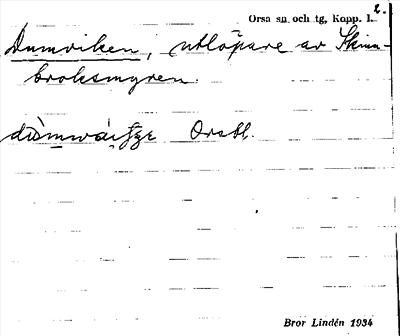 2.
Orsa sn och tg, Kopp. l.
Dumviken, utlöpare av Skinn-
broksmyren.
Orsbl.
Bror Lindén 1934